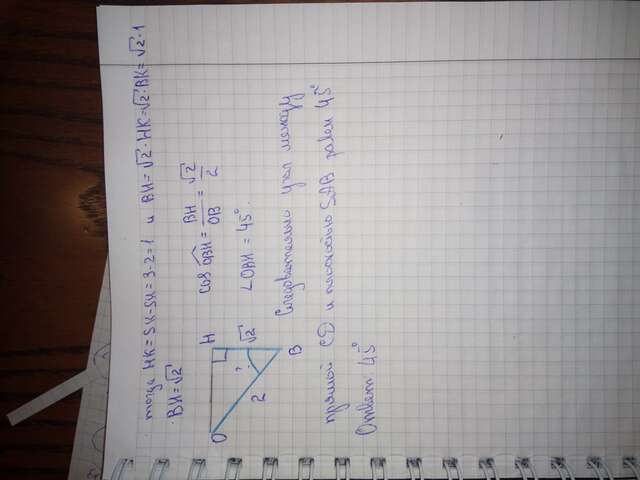 тогда HK = SK-SH = 3-2=1 и BH = √2·HK=√2·BK=√2·1
·BH=√2
cos O͡BH = BH/OB = √2/2
∠OBH = 45°.
O
H
B
2
?
√2
Следовательно угол между
прямой CD и плоскостью SAB равен 45°
Ответ 45°